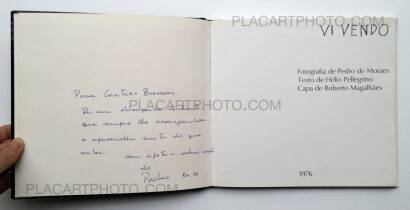 PLACARTPHOTO.COM
VIVENDO
Para Cartier Bresson
que sempre lhe acompanhou
e aprendeu muito do que
sabe com afeto e
do
Pedro
Fotografia de Pedro de Moraes
Texto de Hélio Pellegrino
Capa de Roberto Magalhães
PLACARTPHOTO.COM
1976
PLACARTPHOTO.COM